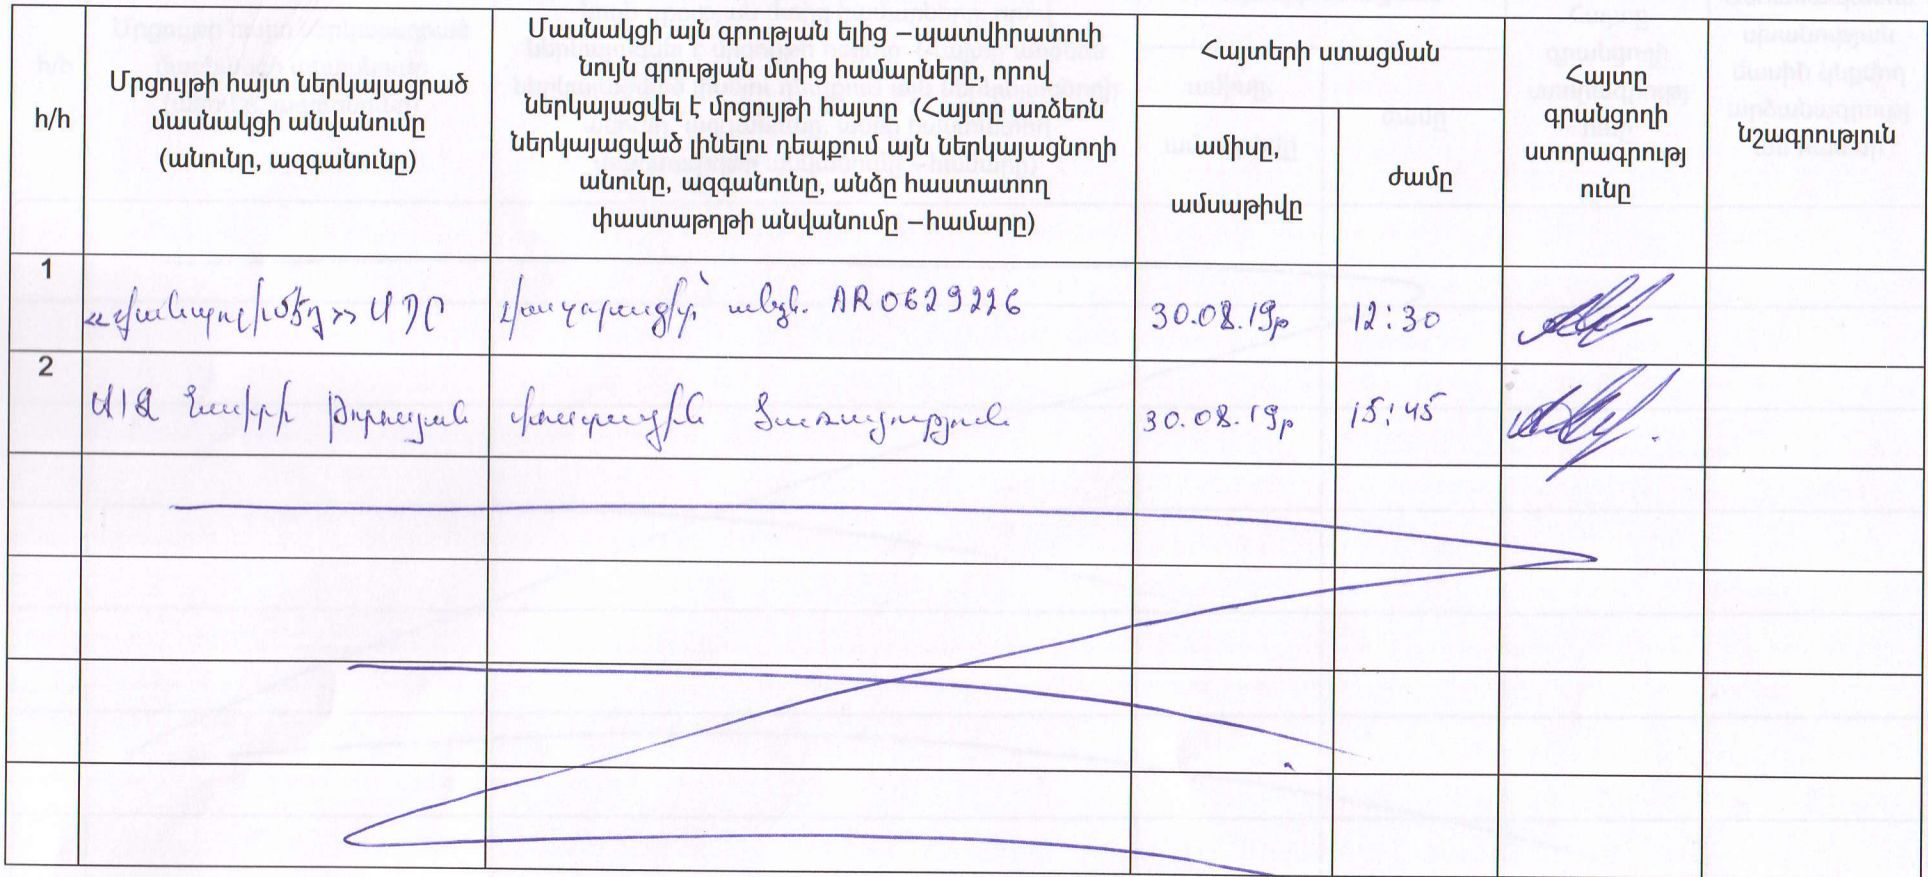 հ/հ
Մրցույթի հայտ ներկայացրած
մասնակցի անվանումը
(անունը, ազգանունը)
Մասնակցի այն գրության ելից –պատվիրատուի
նույն գրության մտից համարները, որով
ներկայացվել է մրցույթի հայտը (Հայտը առձեռն
ներկայացված լինելու դեպքում այն ներկայացնողի
անունը, ազգանունը, անձը հաստատող
փաստաթղթի անվանումը –համարը)
Հայտերի ստացման
ամիսը,
ամսաթիվը
ժամը
Հայտը
գրանցողի
ստորագրությ
ունը
նշագրություն
1
ՍՊԸ
AR0629226
30.08.19թ
12:30
2
30.08.19թ
15:45